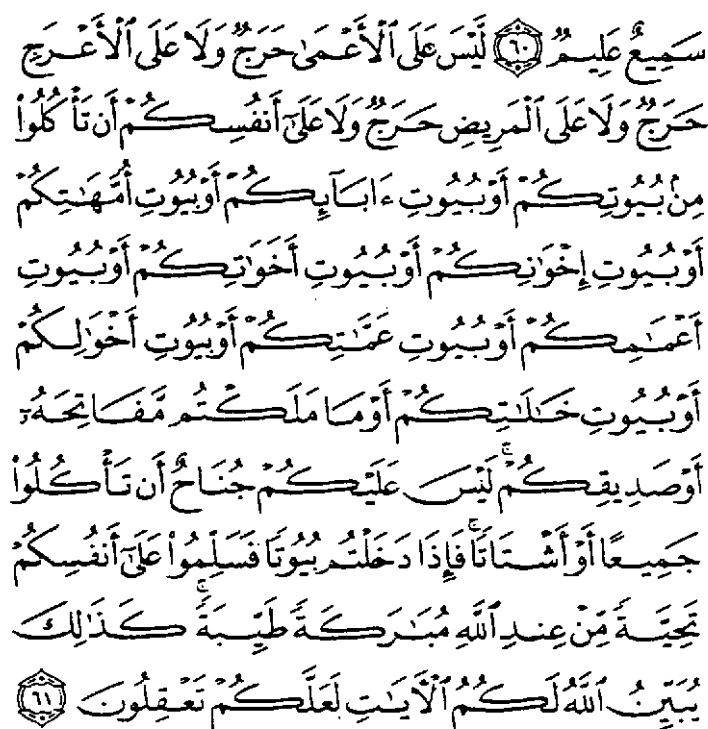 سَمِيعٌ عَلِيمٌ ۝٦٠ لَّيْسَ عَلَى ٱلْأَعْمَىٰ حَرَجٌ وَلَا عَلَى ٱلْأَعْرَجِ
حَرَجٌ وَلَا عَلَى ٱلْمَرِيضِ حَرَجٌ وَلَا عَلَىٰٓ أَنفُسِكُمْ أَن تَأْكُلُوا۟
مِنۢ بُيُوتِكُمْ أَوْ بُيُوتِ ءَابَآئِكُمْ أَوْ بُيُوتِ أُمَّهَٰتِكُمْ
أَوْ بُيُوتِ إِخْوَٰنِكُمْ أَوْ بُيُوتِ أَخَوَٰتِكُمْ أَوْ بُيُوتِ
أَعْمَٰمِكُمْ أَوْ بُيُوتِ عَمَّٰتِكُمْ أَوْ بُيُوتِ أَخْوَٰلِكُمْ
أَوْ بُيُوتِ خَٰلَٰتِكُمْ أَوْ مَا مَلَكْتُم مَّفَاتِحَهُۥٓ
أَوْ صَدِيقِكُمْ ۚ لَيْسَ عَلَيْكُمْ جُنَاحٌ أَن تَأْكُلُوا۟
جَمِيعًا أَوْ أَشْتَاتًا ۚ فَإِذَا دَخَلْتُم بُيُوتًا فَسَلِّمُوا۟ عَلَىٰٓ أَنفُسِكُمْ
تَحِيَّةً مِّنْ عِندِ ٱللَّهِ مُبَٰرَكَةً طَيِّبَةً ۚ كَذَٰلِكَ
يُبَيِّنُ ٱللَّهُ لَكُمُ ٱلْأَيَٰتِ لَعَلَّكُمْ تَعْقِلُونَ ۝٦١